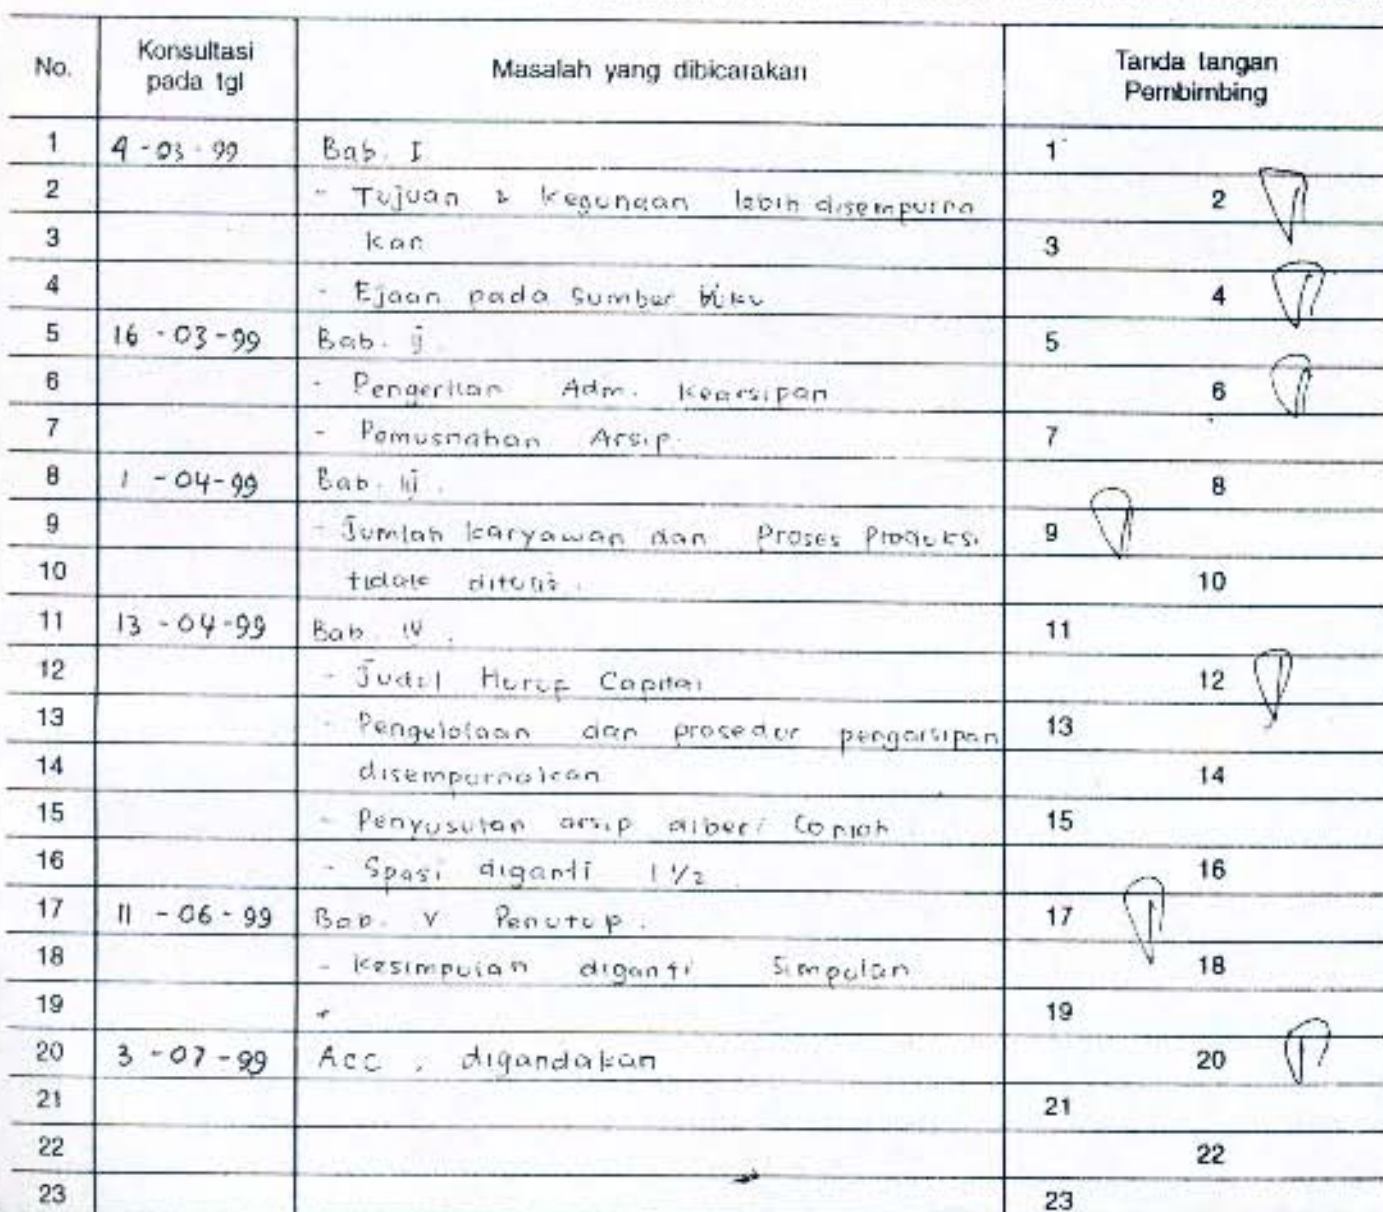 No. Konsultasi pada tgl Masalah yang dibicarakan Tanda tangan Pembimbing
1 9 - 03 - 99 Bab. I 1
2 - Tujuan & kegunaan lebih disempurna 2
3 kan 3
4 - Ejaan pada sumber buku 4
5 16 - 03 - 99 Bab. ij. 5
6 - Pengertian Adm. kearsipan 6
7 - Pemusnahan Arsip. 7
8 1 - 04 - 99 Bab. iij. 8
9 - Jumlah karyawan dan Proses Produksi 9
10 tidak ditulis. 10
11 13 - 04 - 99 Bab. IV. 11
12 - Judul Huruf Capital 12
13 - Pengelolaan dan prosedur pengarsipan 13
14 disempurnakan 14
15 - Penyusutan arsip diberi Contoh 15
16 - Spasi diganti 1 1/2 16
17 11 - 06 - 99 Bab. V Penutup. 17
18 - Kesimpulan diganti Simpulan 18
19 19
20 3 - 07 - 99 Acc, digandakan 20
21 21
22 22
23 23